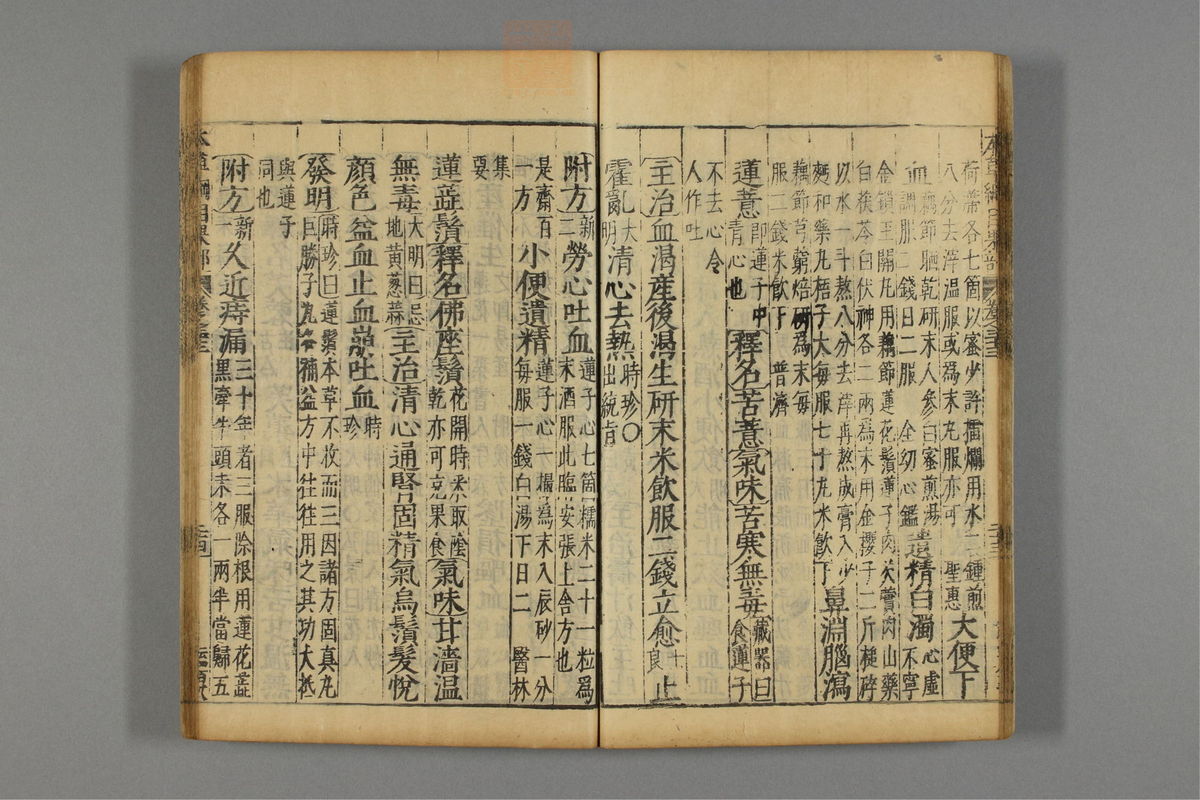 荷蒂各七箇以蜜少許擂爛用水二鍾煎
八分去滓溫服或為末丸服亦可 聖惠 大便下
血藕節晒乾研末人參白蜜煎湯
調服二錢日二服 全幼心鑑 遺精白濁心虛不寧
金鎖玉關丸用藕節蓮花鬚蓮子肉芡實肉山藥
白茯苓白伏神各二兩為末用金櫻子二斤槌碎
以水一斗熬八分去滓再熬成膏入少
麵和藥丸梧子大每服七十丸米飲下 鼻淵腦瀉
藕節芎藭焙研為末每
服二錢米飲下 普濟
蓮薏即蓮子中青心也 釋名苦薏氣味苦寒無毒藏器曰食蓮子
不去心令
人作吐
主治血渴產後渴生研末米飲服二錢立愈士良止
霍亂大明清心去熱時珍○出統旨
附方新二勞心吐血蓮子心七箇糯米二十一粒為末酒服此臨安張上舍方也
是齋百一方 小便遺精蓮子心一撮為末入辰砂一分每服一錢白湯下日二 醫林
集要
蓮蕋鬚釋名佛座鬚花開時采取陰乾亦可充果食氣味甘濇溫
無毒大明曰忌地黃蔥蒜主治清心通腎固精氣烏鬚髮悅
顏色益血止血崩吐血時珍
發明時珍曰蓮鬚本草不收而三因諸方固真丸巨勝子丸各補益方中往往用之其功大抵
與蓮子同也
附方新一久近痔漏三十年者三服除根用蓮花蕋黑牽牛頭末各一兩半當歸五